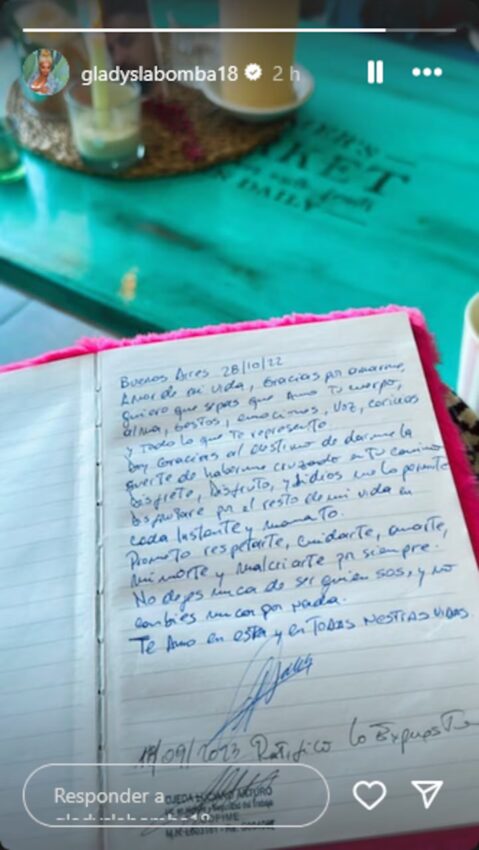 gladyslabomba18 2 h
MARKET
DAILY
Buenos Aires 28/10/22
Amor de mi vida, Gracias por amarme,
quiero que sepas que Amo Tu cuerpo,
alma, gestos, emociones, Voz, caricias
y Todo lo que Te representa
Doy Gracias al destino de darme la
suerte de haberme cruzado en tu camino
Disfrete, Disfruto, y si dios me lo permite
Disfrutare por el resto de mi vida en
cada Instante y momento.
Prometo respetarte, cuidarte, amarte,
mimarte y malcriarte por siempre.
No dejes nunca de ser quien sos, y no
cambies nunca por nada.
Te Amo en esta y en TODAS NESTRAS VIDAS.
18/09/2023 Ratifico lo Expuesto
OJEDA LUCIANO ARTURO
Responder a
gladyslabomba18